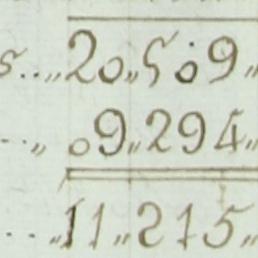 s....,,20,,509,,
..,,09,,294,,
....,,11,,215,,